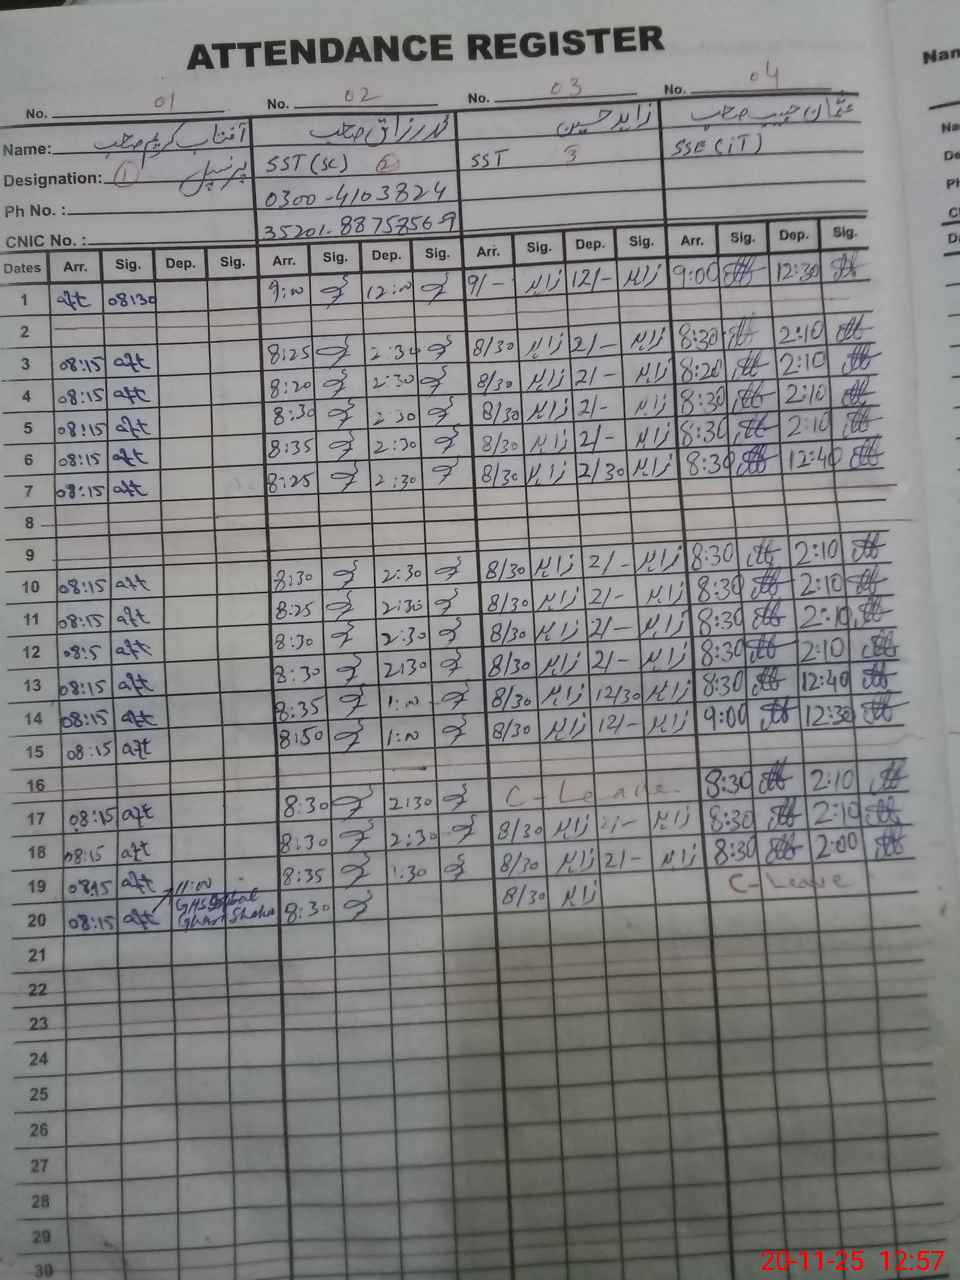 ATTENDANCE REGISTER
No. 01 No. 02 No. 03 No. 04
Name: آفتاب کریم صاحب صاحب زاہد حسین صاحب
Designation: 1 پرنسپل SST (SC) 2 SST 3 SSE (IT)
Ph No. : 0300-4103824
CNIC No. : 35201-8875856-9
Dates Arr. Sig. Dep. Sig. Arr. Sig. Dep. Sig. Arr. Sig. Dep. Sig. Arr. Sig. Dep. Sig.
1 aft 08:30 9:00 12:00 9/- زاہد 12/- زاہد 9:00 12:30
2
3 08:15 aft 8:25 2:30 8/30 زاہد 2/- زاہد 8:30 2:10
4 08:15 aft 8:20 2:30 8/30 زاہد 2/- زاہد 8:20 2:10
5 08:15 aft 8:30 2:30 8/30 زاہد 2/- زاہد 8:30 2:10
6 08:15 aft 8:35 2:30 8/30 زاہد 2/- زاہد 8:30 2:10
7 08:15 aft 8:25 2:30 8/30 زاہد 2/30 زاہد 8:30 12:40
8
9
10 08:15 aft 8:30 2:30 8/30 زاہد 2/- زاہد 8:30 2:10
11 08:15 aft 8:25 2:30 8/30 زاہد 2/- زاہد 8:30 2:10
12 08:5 aft 8:30 2:30 8/30 زاہد 2/- زاہد 8:30 2:10
13 08:15 aft 8:30 2:30 8/30 زاہد 2/- زاہد 8:30 2:10
14 08:15 aft 8:35 1:00 8/30 زاہد 12/30 زاہد 8:30 12:40
15 08:15 aft 8:50 1:00 8/30 زاہد 12/- زاہد 9:00 12:30
16
17 08:15 aft 8:30 2:30 C-Leave 8:30 2:10
18 08:15 aft 8:30 2:30 8/30 زاہد 2/- زاہد 8:30 2:10
19 08:15 aft 8:35 1:30 8/30 زاہد 2/- زاہد 8:30 2:00
20 08:15 aft 11:00 GHS 8:30 8/30 زاہد C-Leave
21
22
23
24
25
26
27
28
29
30
20-11-25 12:57